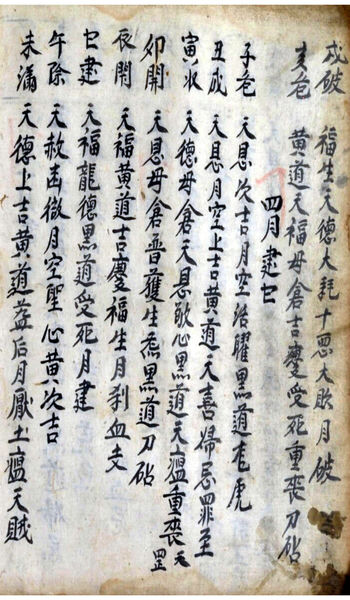 戌破 福生天德大耗十惡大敗月破
亥危 黄道天福母倉吉慶受死重喪刀砧
四月建巳
子危 天恩次吉月空活曜黑道虎
丑成 天恩月空上吉黄道天喜婦忌罪至
寅收 天德母倉天恩敬心黑道天瘟重喪天罡
卯開 天恩母倉普護生炁黑道刀砧
辰閉 天福黄道吉慶福生月刹血支
巳建 天福龍德黑道受死月建
午除 天赦幽微月空聖心黄次吉
未滿 天德上吉黄道益后月厭土瘟天賊